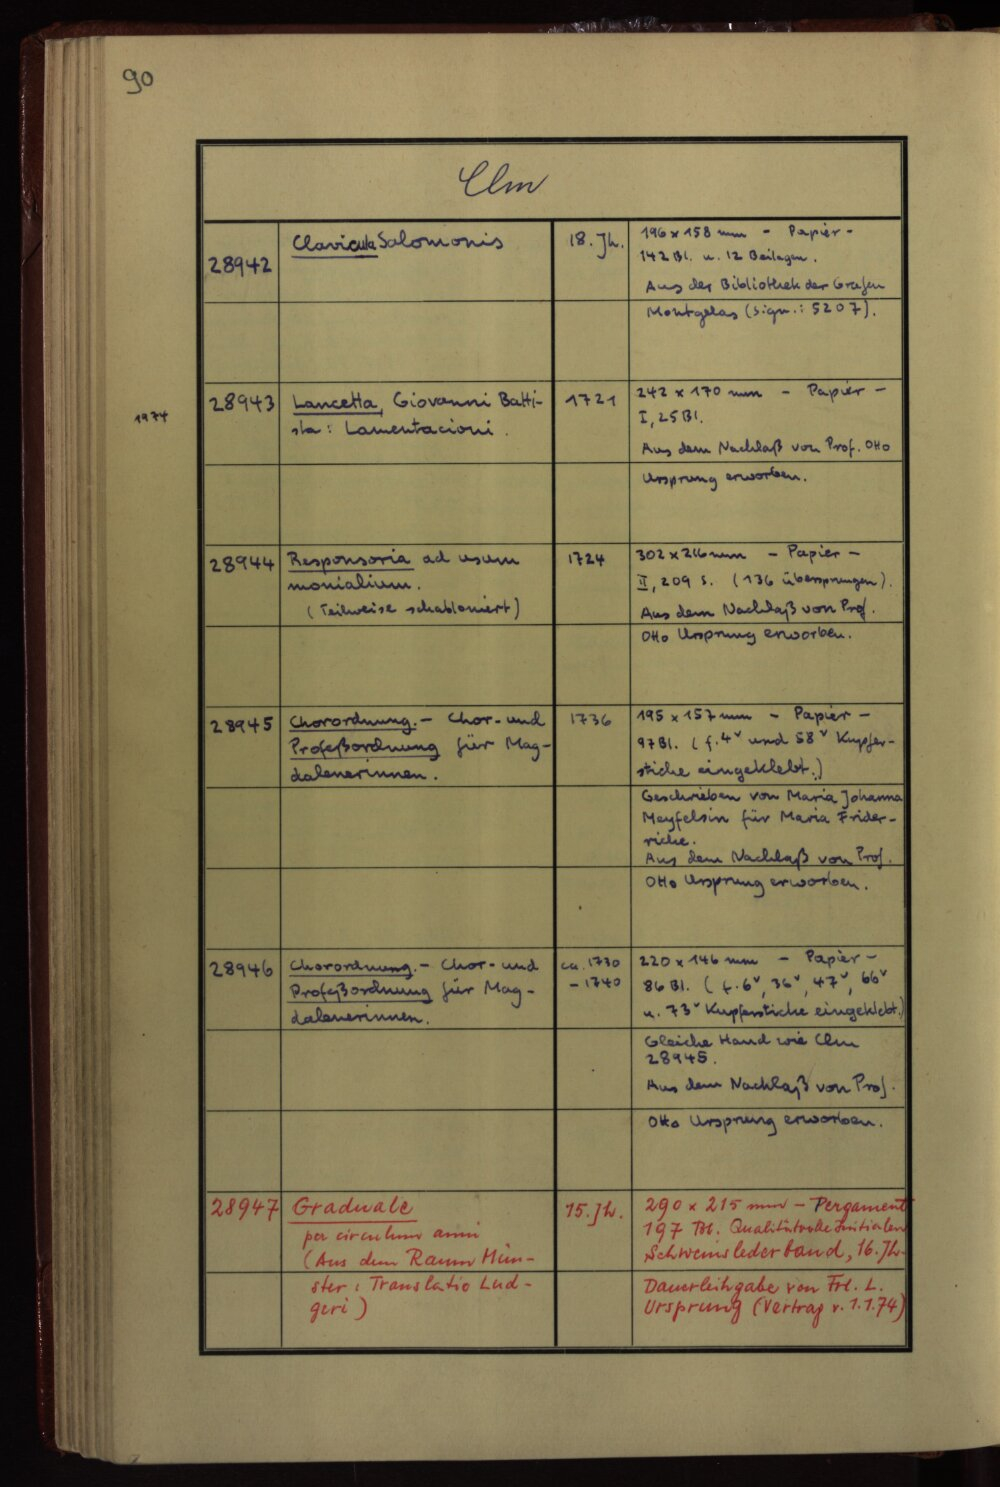 90
Clm
28942
Clavicula Salomonis
18. Jh.
196 x 158 mm - Papier -
142 Bl. u. 12 Beilagen.
Aus der Bibliothek der Grafen
Montgelas (Sign.: 5207).
1974
28943
Lancetta, Giovanni Batti-
sta: Lamentacioni.
1721
242 x 170 mm - Papier -
I, 25 Bl.
Aus dem Nachlaß von Prof. Otto
Ursprung erworben.
28944
Responsoria ad usum
monialium.
(Teilweise schabloniert)
1724
302 x 216 mm - Papier -
II, 209 S. (136 übersprungen).
Aus dem Nachlaß von Prof.
Otto Ursprung erworben.
28945
Chorordnung. - Chor- und
Profeßordnung für Mag-
dalenerinnen.
1736
195 x 157 mm - Papier -
97 Bl. (f. 4v und 58v Kupfer-
stiche eingeklebt.)
Geschrieben von Maria Johanna
Meyfelsin für Maria Frider-
riche.
Aus dem Nachlaß von Prof.
Otto Ursprung erworben.
28946
Chorordnung. - Chor- und
Profeßordnung für Mag-
dalenerinnen.
ca. 1730
- 1740
220 x 146 mm - Papier -
86 Bl. (f. 6v, 36v, 47v, 66v
u. 73v Kupferstiche eingeklebt.)
Gleiche Hand wie Clm
28945.
Aus dem Nachlaß von Prof.
Otto Ursprung erworben.
28947
Graduale
per circulum anni
(Aus dem Raum Mün-
ster: Translatio Lud-
geri)
15. Jh.
290 x 215 mm - Pergament
197 Bl. Qualitätvolle Initialen
Schweinslederband, 16. Jh.
Dauerleihgabe von Frl. L.
Ursprung (Vertrag v. 1.1.74)